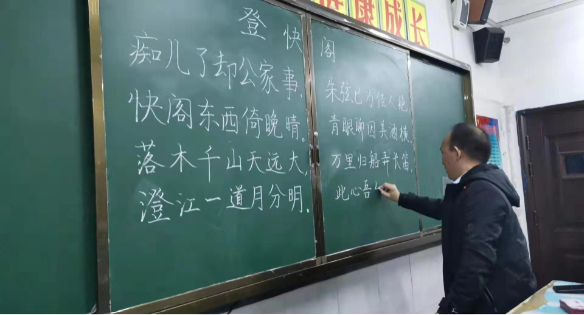 健康成长
登快阁
痴儿了却公家事,
快阁东西倚晚晴。
落木千山天远大,
澄江一道月分明.
朱弦已为佳人绝
青眼聊因美酒横
万里归船弄长笛
此心吾